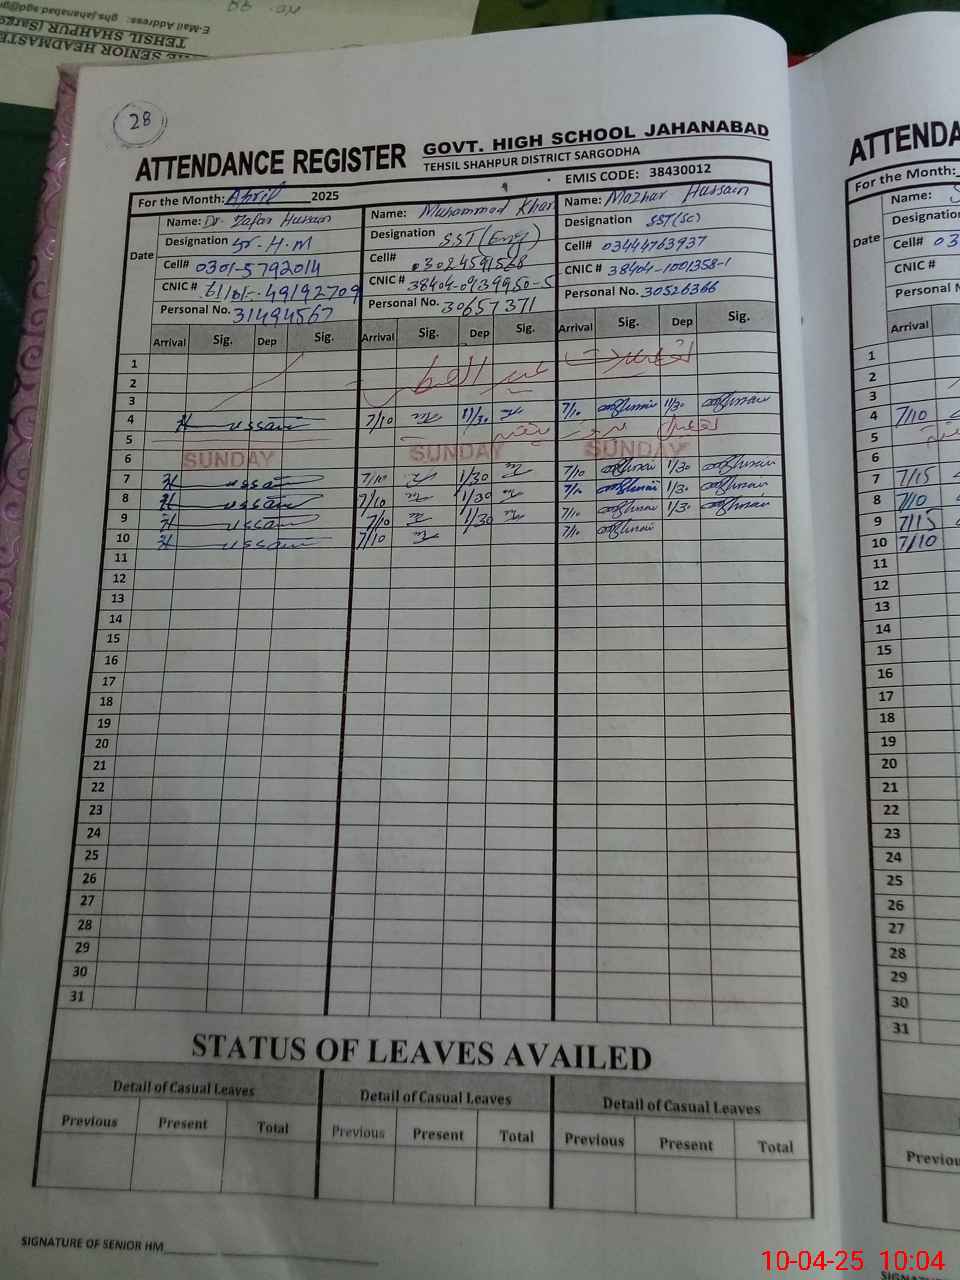 THE SENIOR HEADMASTE
TEHSIL SHAHPUR (Sargo
E-Mail Address: ghs.jahanabad.sgd@g
28
ATTENDANCE REGISTER GOVT. HIGH SCHOOL JAHANABAD
TEHSIL SHAHPUR DISTRICT SARGODHA
EMIS CODE: 38430012
For the Month: April 2025
Date
Name: Dr. Zafar Hussain
Designation Sr. H.M
Cell# 0301-5792014
CNIC #
Personal No. 31494567
Name: Muhammad Khan
Designation SST (Eng)
Cell# 03024591568
CNIC # 38404-0939950-5
Personal No. 30657371
Name: Mazhar Hussain
Designation SST(Sc)
Cell# 03444763937
CNIC # 38404-1001358-1
Personal No. 30526366
Arrival Sig. Dep Sig. Arrival Sig. Dep Sig. Arrival Sig. Dep Sig.
1
2 عید الفطر
3
4 7/10 1/30 7/10 1/30
5
6 SUNDAY SUNDAY SUNDAY
7 7/10 1/30 7/10 1/30
8 7/10 1/30 7/10 1/30
9 7/10 1/30 7/10 1/30
10 7/10 7/10
11
12
13
14
15
16
17
18
19
20
21
22
23
24
25
26
27
28
29
30
31
STATUS OF LEAVES AVAILED
Detail of Casual Leaves Detail of Casual Leaves Detail of Casual Leaves
Previous Present Total Previous Present Total Previous Present Total
SIGNATURE OF SENIOR HM
ATTENDA
For the Month:
Date
Name:
Designation
Cell# 03
CNIC #
Personal N
Arrival
1
2
3
4 7/10
5
6
7 7/15
8 7/10
9 7/15
10 7/10
11
12
13
14
15
16
17
18
19
20
21
22
23
24
25
26
27
28
29
30
31
Previou
SIGNA
10-04-25 10:04